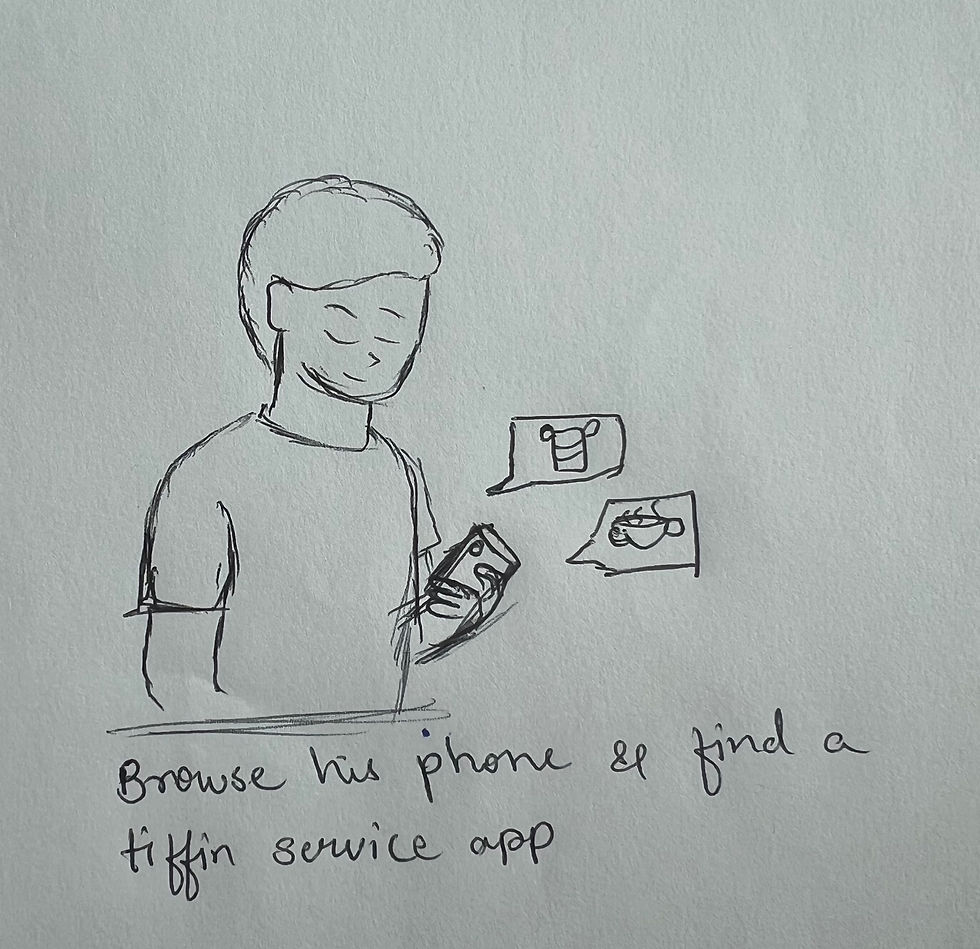 Browse his phone & find a
tiffin service app